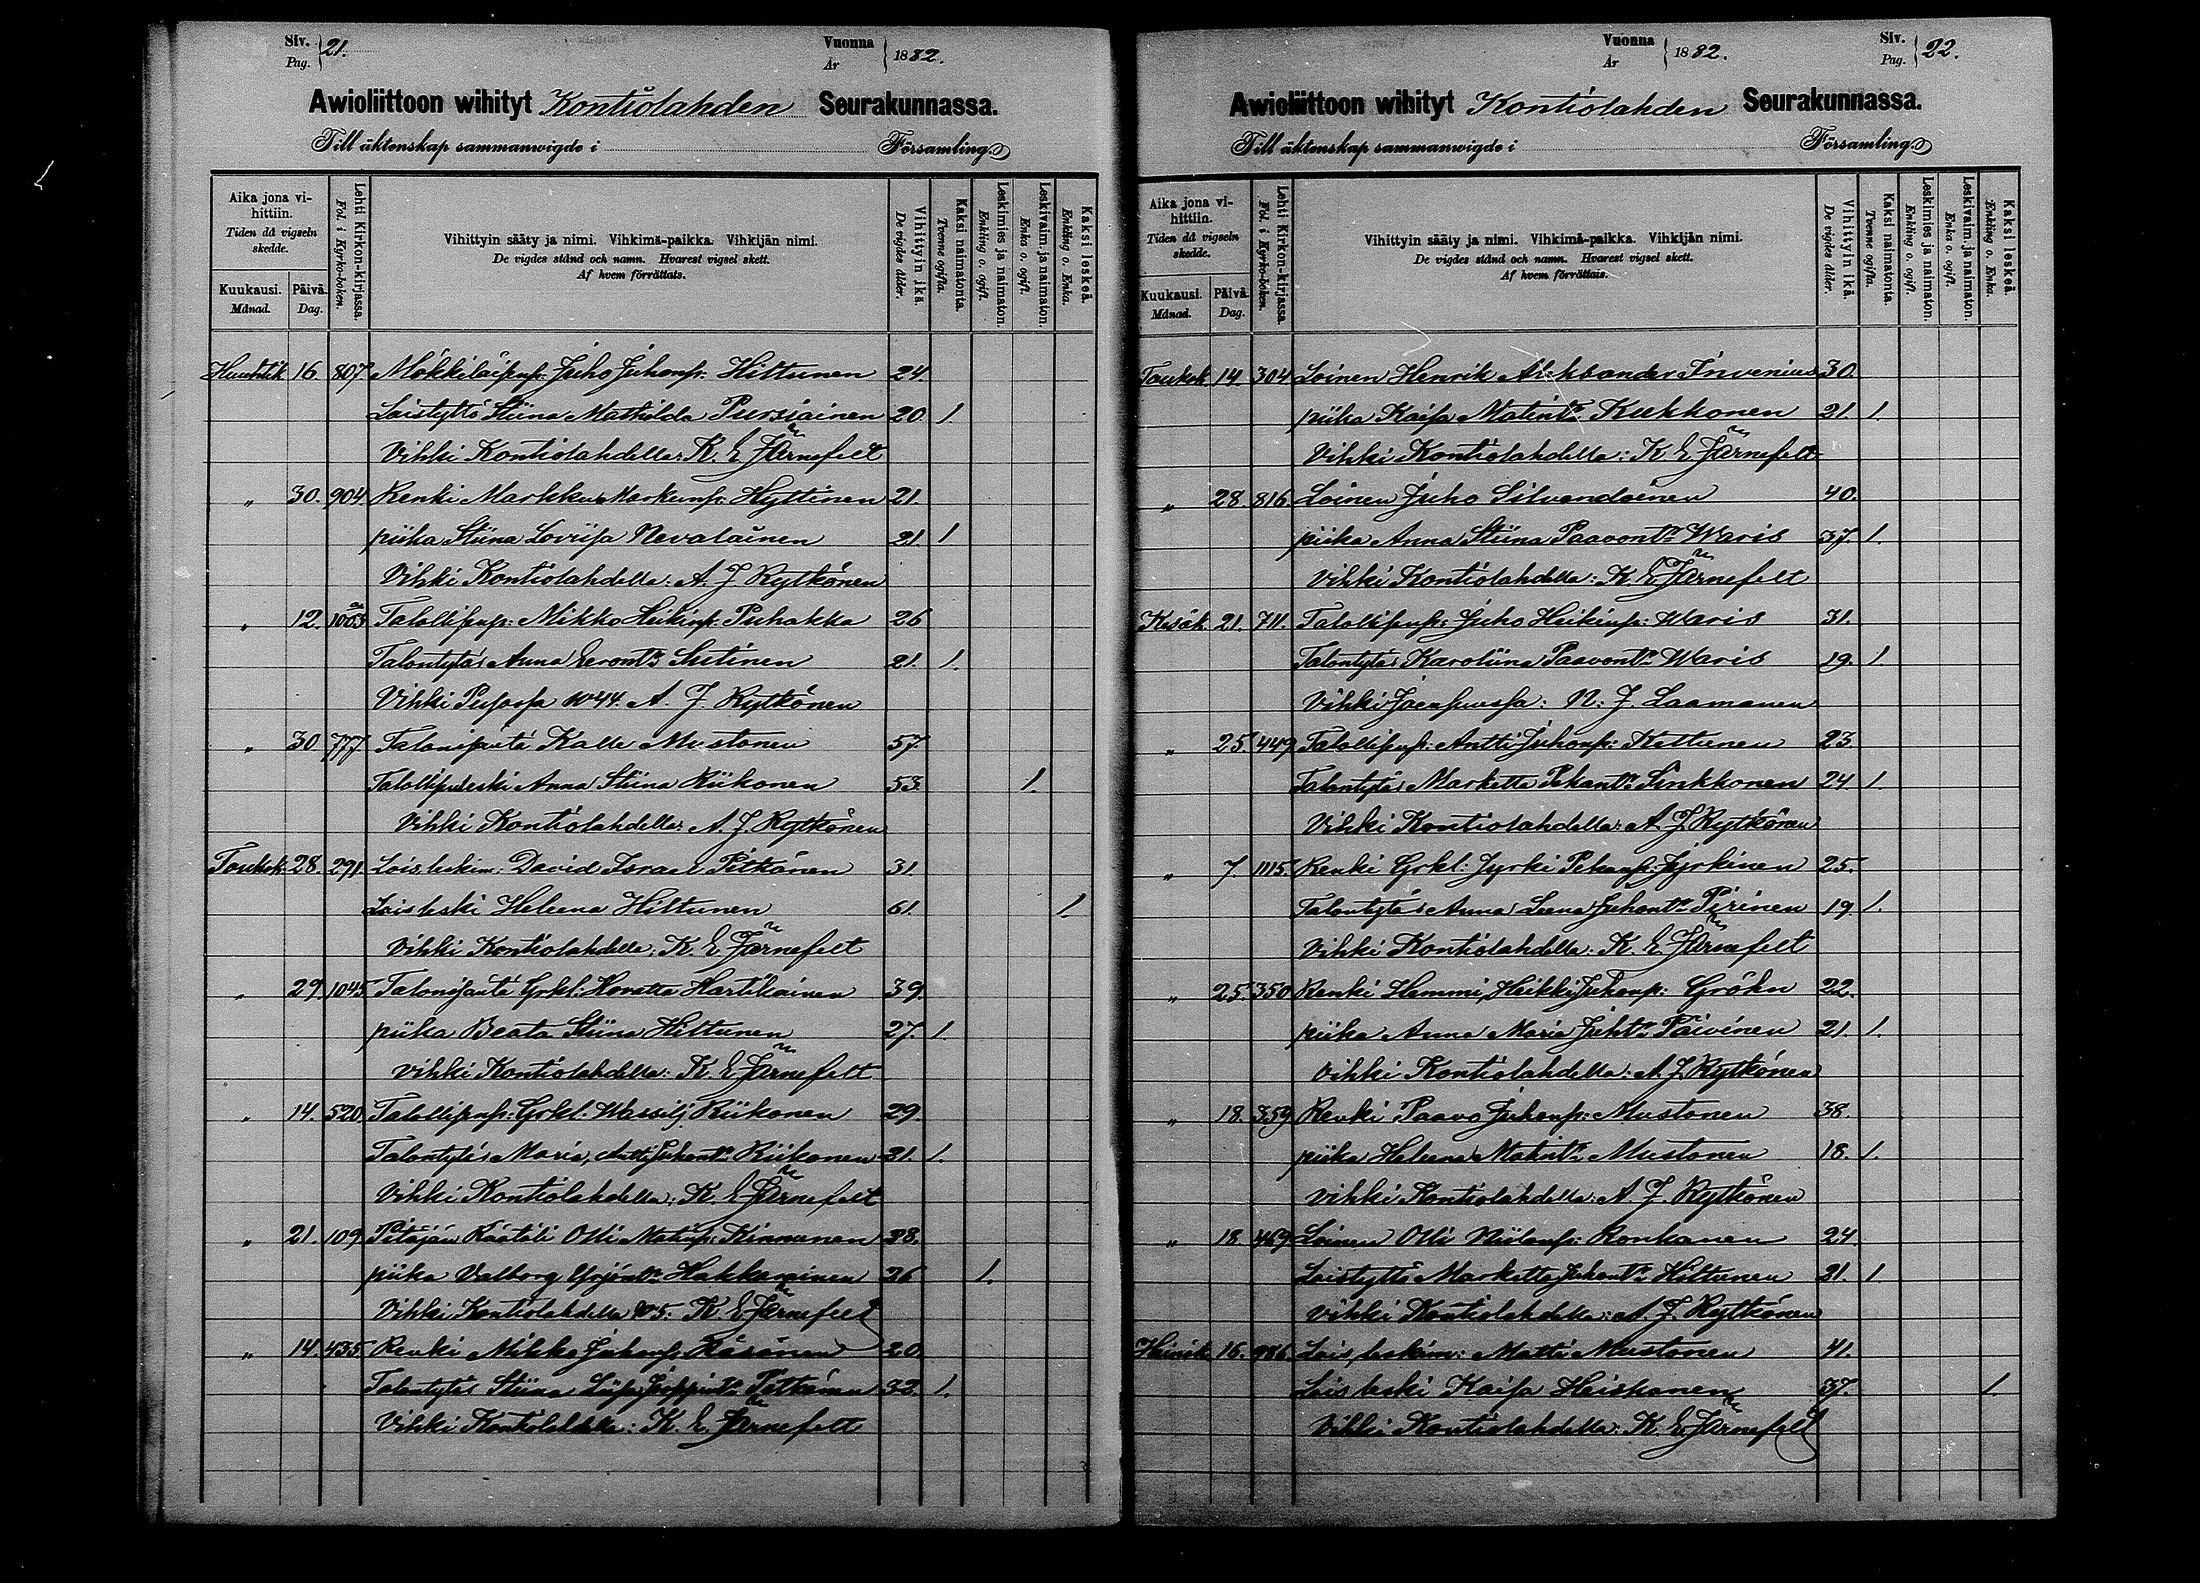 Siv. Pag. 21.
Vuonna År 1882.
Awioliittoon wihityt Kontiolahden Seurakunnassa.
Till äktenskap sammanwigde i Församling.
Aika jona vihittiin. Tiden då vigseln skedde.
Kuukausi. Månad.
Päivä. Dag.
Lehti Kirkon-kirjassa. Fol. i Kyrko-boken.
Vihittyin sääty ja nimi. Vihkimä-paikka. Vihkijän nimi.
De vigdes stånd och namn. Hvarest vigsel skett.
Af hvem förrättats.
Vihittyin ikä. De vigdes ålder.
Kaksi naimatonta. Tvenne ogifta.
Leskimies ja naimaton. Enkling o. ogift.
Leskivaim. ja naimaton. Enka o. ogift.
Kaksi leskeä. Enkling o. Enka.
Huhtik. 16. 807 Mökkiläisenp: Juho Juhonp: Hiltunen 24.
Loistyttö Stiina Mathilda Pursiainen 20. 1.
Vihki Kontiolahdella: K. E Järnefelt
" 30. 904 Renki Markku Markunp: Hyttinen 21.
piika Stiina Loviisa Nevalainen 21. 1
Vihki Kontiolahdella: A. J Rytkönen
" 12. 1003 Talollisenp: Mikko Heikinp: Puhakka 26
Talontytär Anna Eeront: Sutinen 21. 1.
Vihki A. J Rytkönen
" 30 777. Talonisäntä Kalle Mustonen 57.
Talollisenleski Anna Stiina Riikonen 53. 1.
Vihki Kontiolahdella: A. J. Rytkönen
Toukok: 28. 291. Lois leskim: David Israel Pitkänen 31.
Lois leski Heleena Hiltunen 61. 1.
Vihki Kontiolahdella: K. E Järnefelt
" 29. 1045 Talonisäntä Grkl: Hartikainen 39.
piika Beata Stiina Hiltunen 27. 1.
Vihki Kontiolahdella: K. E Järnefelt
" 14. 520. Talollisenp: Grkl: Wassilj Riikonen 29.
Talontytär Maria, Antti Juhont: Riikonen 21. 1.
Vihki Kontiolahdella: K. E Järnefelt
" 21. 109. Pitäjän Räätäli Olli Matinp: Kinnunen 38.
piika Valborg Yrjönt: Hakkarainen 26 1.
Vihki Kontiolahdella K. E Järnefelt
" 14. 435. Renki Mikko Juhonp: Räsänen 20.
Talontytär Stiina Liisa 32. 1.
Vihki Kontiolahdella: K. E. Järnefelt
Vuonna År 1882.
Siv. Pag. 22.
Awioliittoon wihityt Kontiolahden Seurakunnassa.
Till äktenskap sammanwigde i Församling.
Aika jona vihittiin. Tiden då vigseln skedde.
Kuukausi. Månad.
Päivä. Dag.
Lehti Kirkon-kirjassa. Fol. i Kyrko-boken.
Vihittyin sääty ja nimi. Vihkimä-paikka. Vihkijän nimi.
De vigdes stånd och namn. Hvarest vigsel skett.
Af hvem förrättats.
Vihittyin ikä. De vigdes ålder.
Kaksi naimatonta. Tvenne ogifta.
Leskimies ja naimaton. Enkling o. ogift.
Leskivaim. ja naimaton. Enka o. ogift.
Kaksi leskeä. Enkling o. Enka.
Toukok 14. 304 Loinen Henrik Aleksander Invenius 30.
piika Kaisa Matint: Kukkonen 21. 1.
Vihki Kontiolahdella: K E Järnefelt
" 28. 816. Loinen Juho Silvendoinen 40.
piika Anna Stiina Paavont: Waris 37. 1.
Vihki Kontiolahdella: K. E Järnefelt
Kesäk. 21. 711. Talollisenp: Juho Heikinp: Waris 31.
Talontytär Karoliina Paavont: Waris 19. 1
Vihki Joensuussa: N: J. Laamanen
" 25. 449. Talollisenp: Antti Juhonp: Kettunen 23
Talontytär Marketta Pekant: Sinkkonen 24 1.
Vihki Kontiolahdella: A. J Rytkönen
" 7. 1115. Renki Grkl: Jyrki Pekanp: Jyrkinen 25.
Talontytär Anna Leena Juhont: Pirinen 19. 1.
Vihki Kontiolahdella: K. E Järnefelt
" 25. 350 Renki Hemmi Heikki Juhonp: Gröhn 22.
piika Anna Maria Juht: Päivinen 21. 1.
Vihki Kontiolahdella: A. J. Rytkönen
" 18. 359. Renki Paavo Juhonp: Mustonen 38.
piika Heleena Matint: Mustonen 18. 1.
Vihki Kontiolahdella: A. J. Rytkönen
" 18. 469 Loinen Olli Niilonp: Ronkanen 24
Loistyttö Marketta Juhont: Hiltunen 31. 1.
Vihki Kontiolahdella: A. J. Rytkönen
Heinäk. 16. 986. Lois leskim: Matti Mustonen 41.
Lois leski Kaisa Heiskanen 37. 1.
Vihki Kontiolahdella: K. E Järnefelt